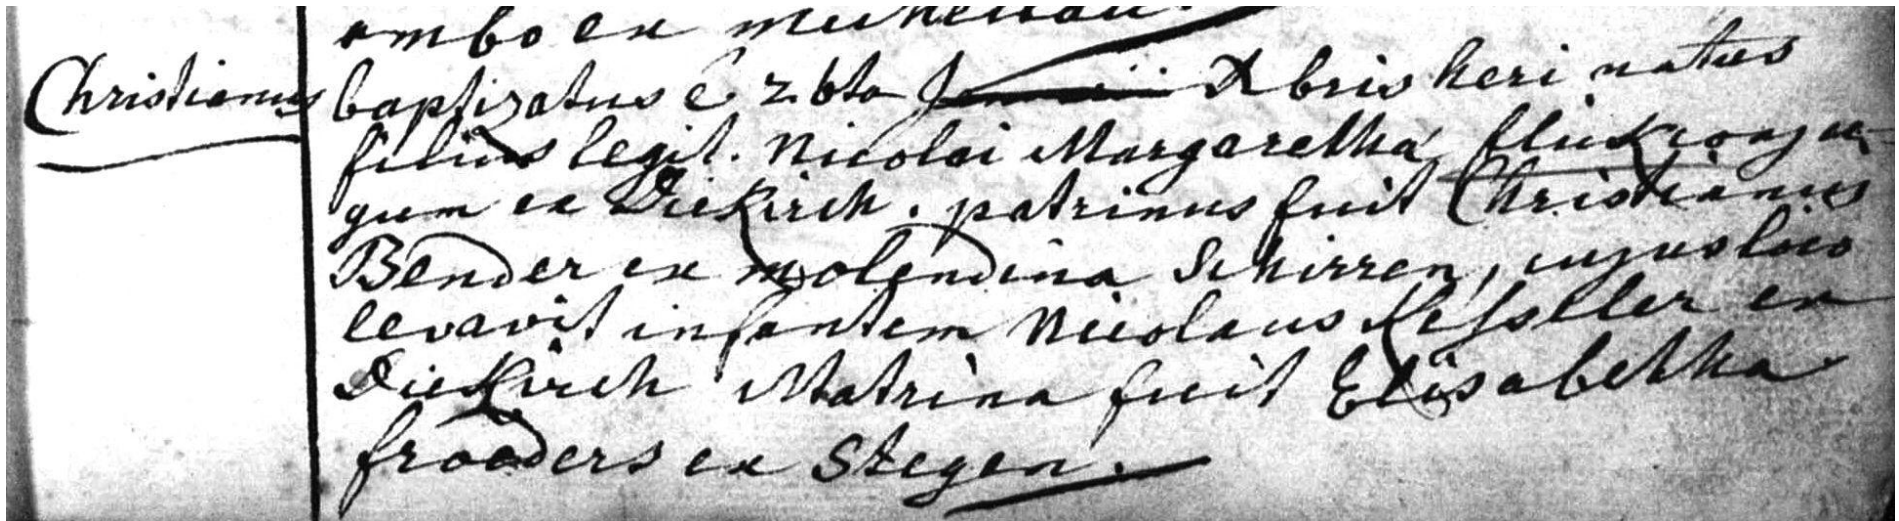 ambo ex
Christianus baptizatus e 26ta Xbris heri natus
filius legit. Nicolai Margaretha flick conju-
gum ex Diekirch. patrinus fuit Christianus
Bender ex molendina Schirren, cujus loco
levavit infantem Nicolaus Kessler ex
Diekirch Matrina fuit Elisabetha
froeders ex Stegen.